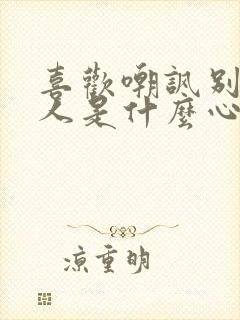 喜歡嘲諷別
人是什麼心
涼重明